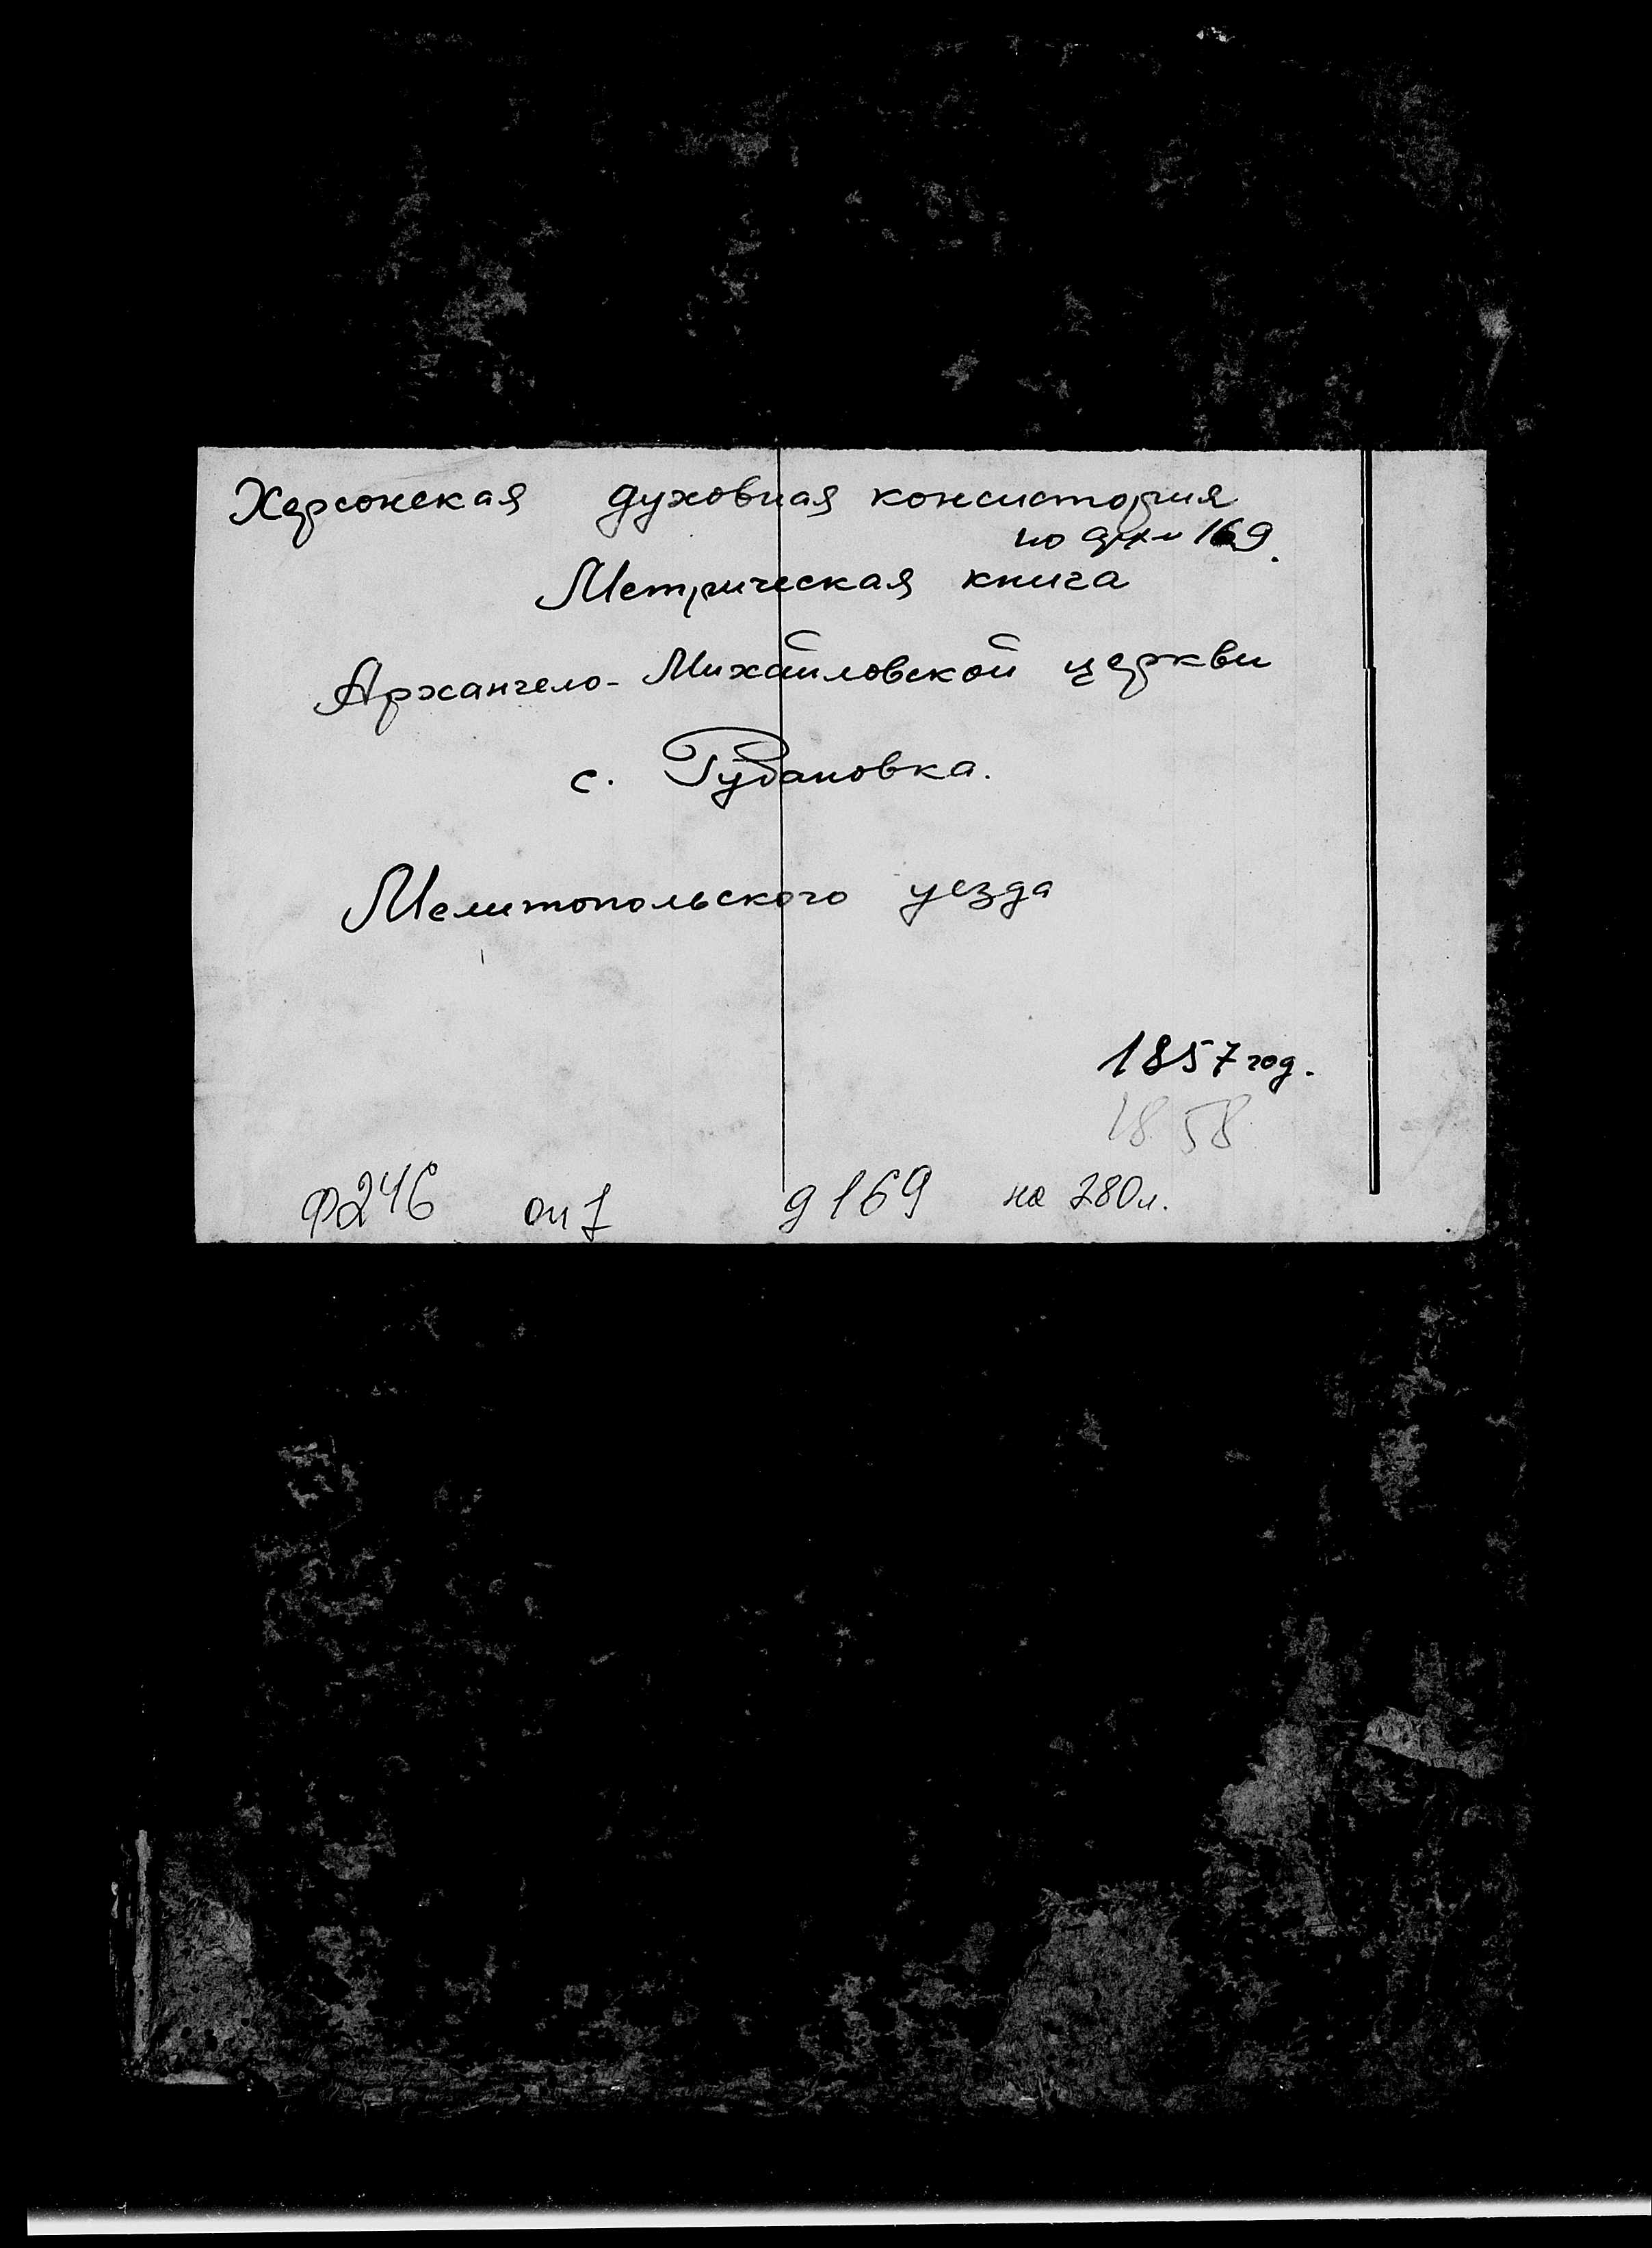 Херсонская духовная консистория
по 169.
Метрическая книга
Архангело-Михайловской церкви
с. Рубановка.
Мелитопольского уезда
1857 год.
1858
Ф 246 оп 1 д 169 на 280 л.